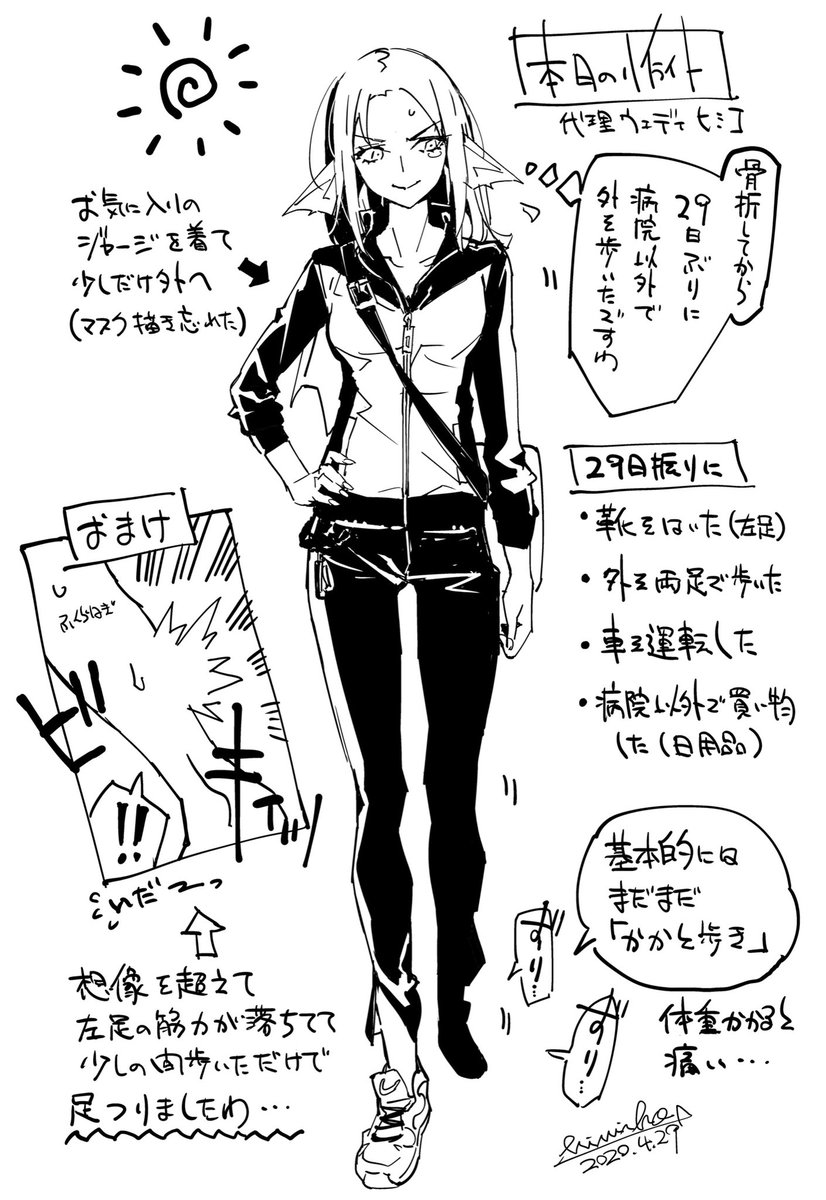 本日のハイライト
代理ウェディヒミコ
骨折してから
29日ぶりに
病院以外で
外を歩いたですわ
お気に入りの
ジャージを着て
少しだけ外へ
(マスク描き忘れた)
29日振りに
・靴をはいた(左足)
・外を両足で歩いた
・車を運転した
・病院以外で買い物
した(日用品)
おまけ
ふくらはぎ
ビキィッ
!!
いだーっ
想像を超えて
左足の筋力が落ちてて
少しの間歩いただけで
足つりましたわ…
基本的には
まだまだ
「かかと歩き」
ずり…
ずり…
体重かかると
痛い…
2020.4.29